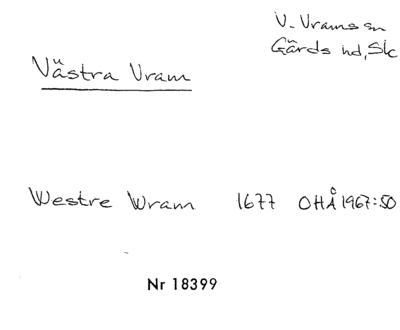 V. Vrams sn
Gärds hd, Sk
Västra Vram
Westre Wram 1677 OHÅ 1967:50
Nr 18399